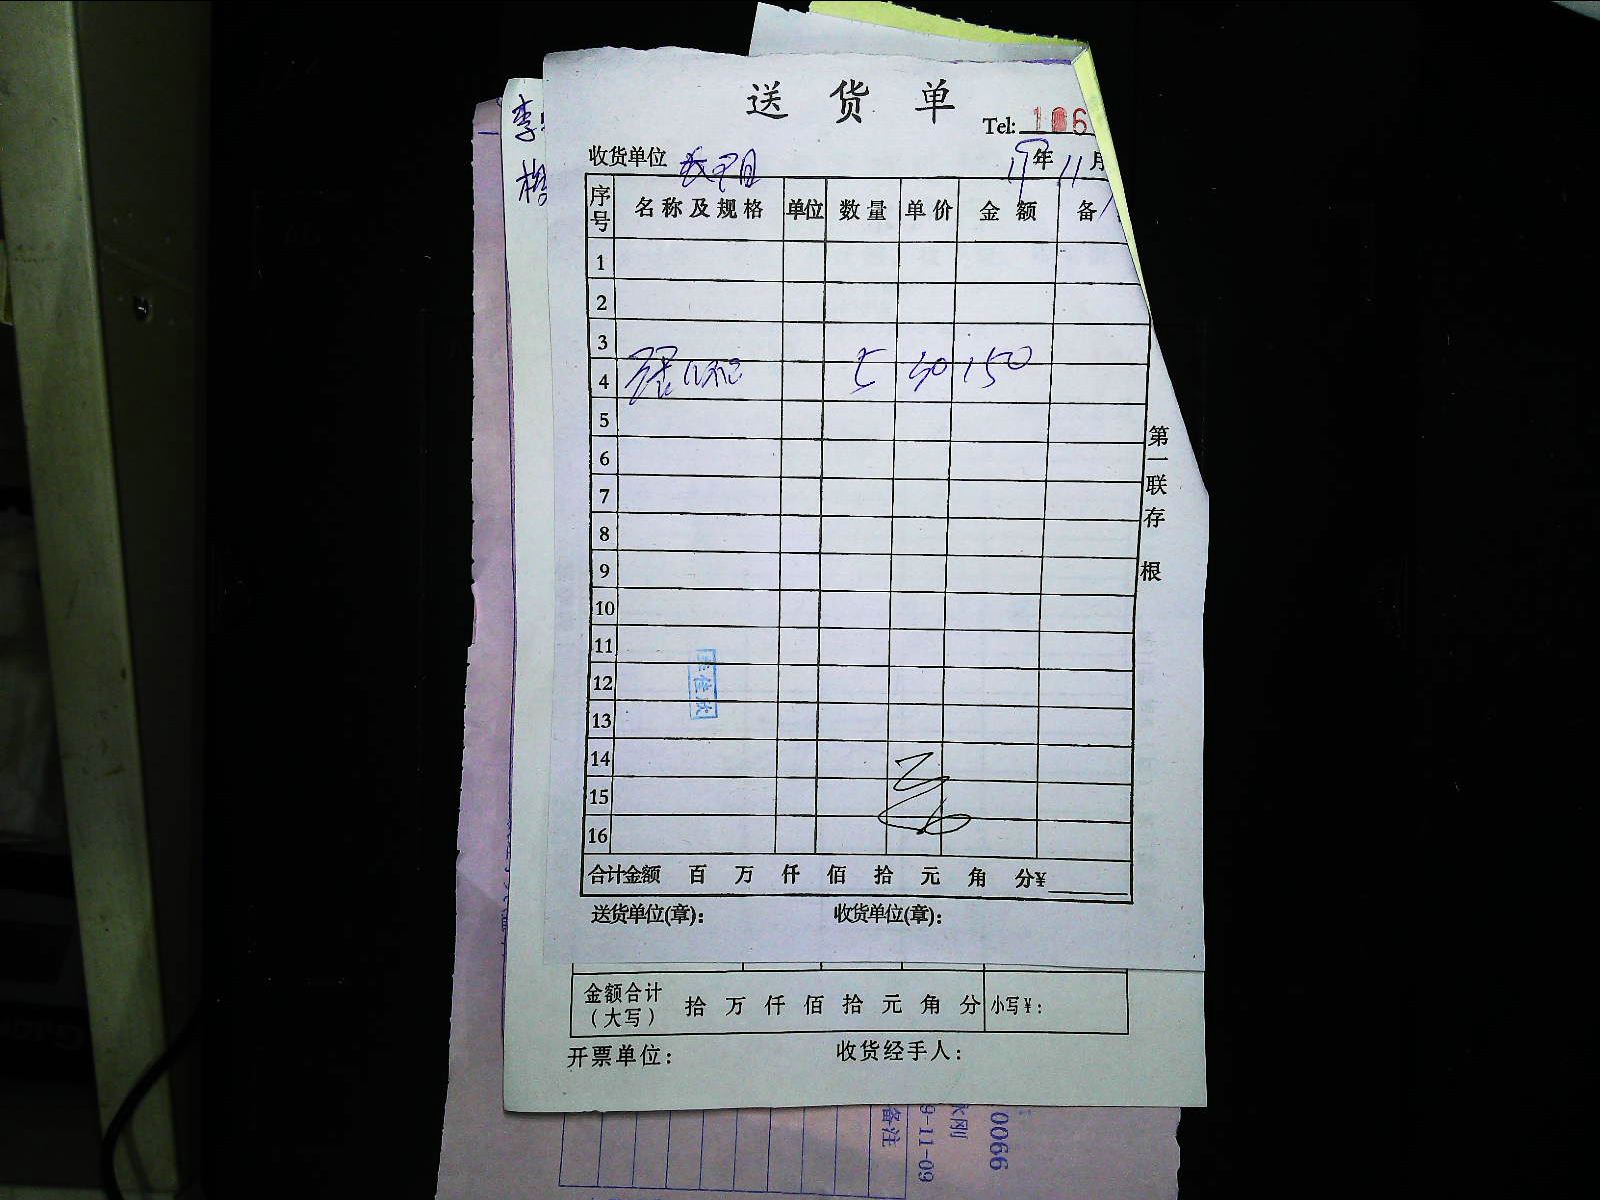 送货单
Tel: 106
收货单位
19年11月
序号 名称及规格 单位 数量 单价 金额 备
1
2
3
4 5 30 150
5
6
7
8
9
10
11
12
13
14
15
16
合计金额 百 万 仟 佰 拾 元 角 分¥
送货单位(章): 收货单位(章):
第一联存根
李
金额合计(大写) 拾 万 仟 佰 拾 元 角 分 小写¥:
开票单位: 收货经手人:
备注
9-11-09
永刚
0066